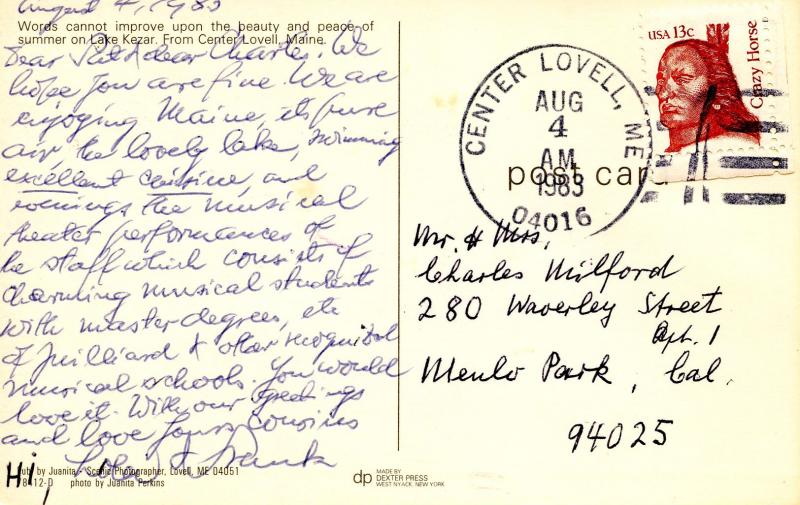 August 4, 1983
Words cannot improve upon the beauty and peace of
summer on Lake Kezar. From Center Lovell, Maine.
Dear dear Charles. We
hope you are fine. We are
enjoying Maine, its pure
air, the lovely lake, swimming
excellent cuisine, and
evenings the musical
theater performances of
the staff which consists of
charming musical students
with master degrees, etc
of Juilliard & other recognized
musical schools. You would
love it. With our greetings
and love yours cousins
& Frank
Hi,
Pub. by Juanita - Scenic Photographer, Lovell, ME 04051
12-D photo by Juanita Perkins
dp MADE BY
DEXTER PRESS
WEST NYACK, NEW YORK
post card
USA 13c
Crazy Horse
CENTER LOVELL, ME
AUG
4
AM
1983
04016
Mr. & Mrs,
Charles Milford
280 Waverley Street
Apt. 1
Menlo Park, Cal.
94025